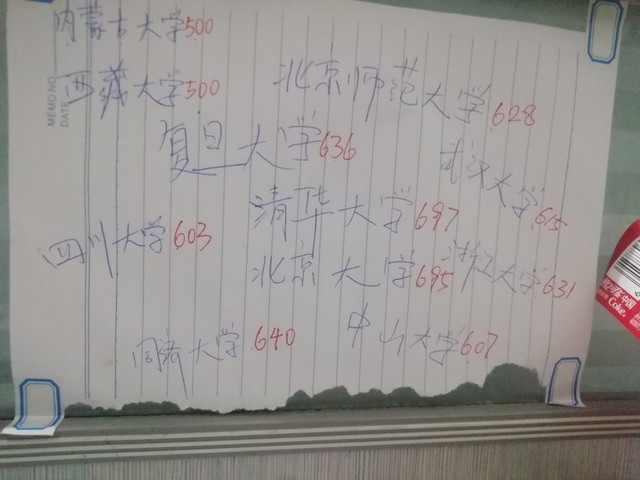 内蒙古大学500
MEMO NO.
DATE
西藏大学500
北京师范大学628
复旦大学636
武汉大学615
清华大学697
四川大学603
北京大学695
浙江大学631
中国
Coke.
同济大学640
中山大学607